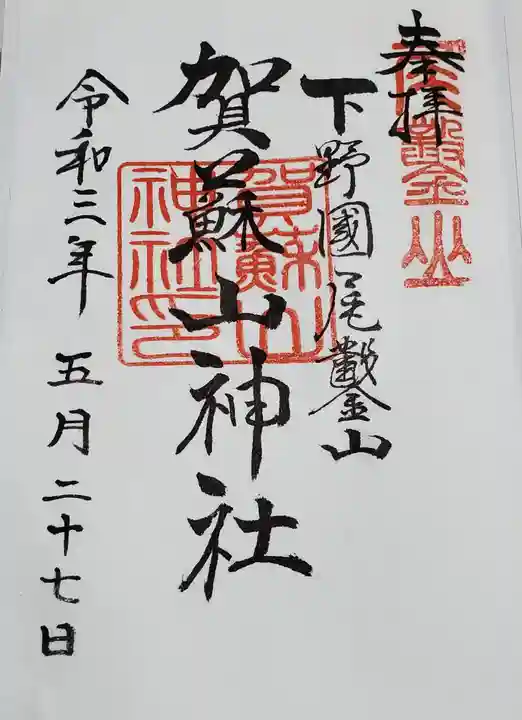 奉拝
尾鑿山
下野國尾鑿山
賀蘇山神社
賀蘇山
神社印
令和三年 五月二十七日